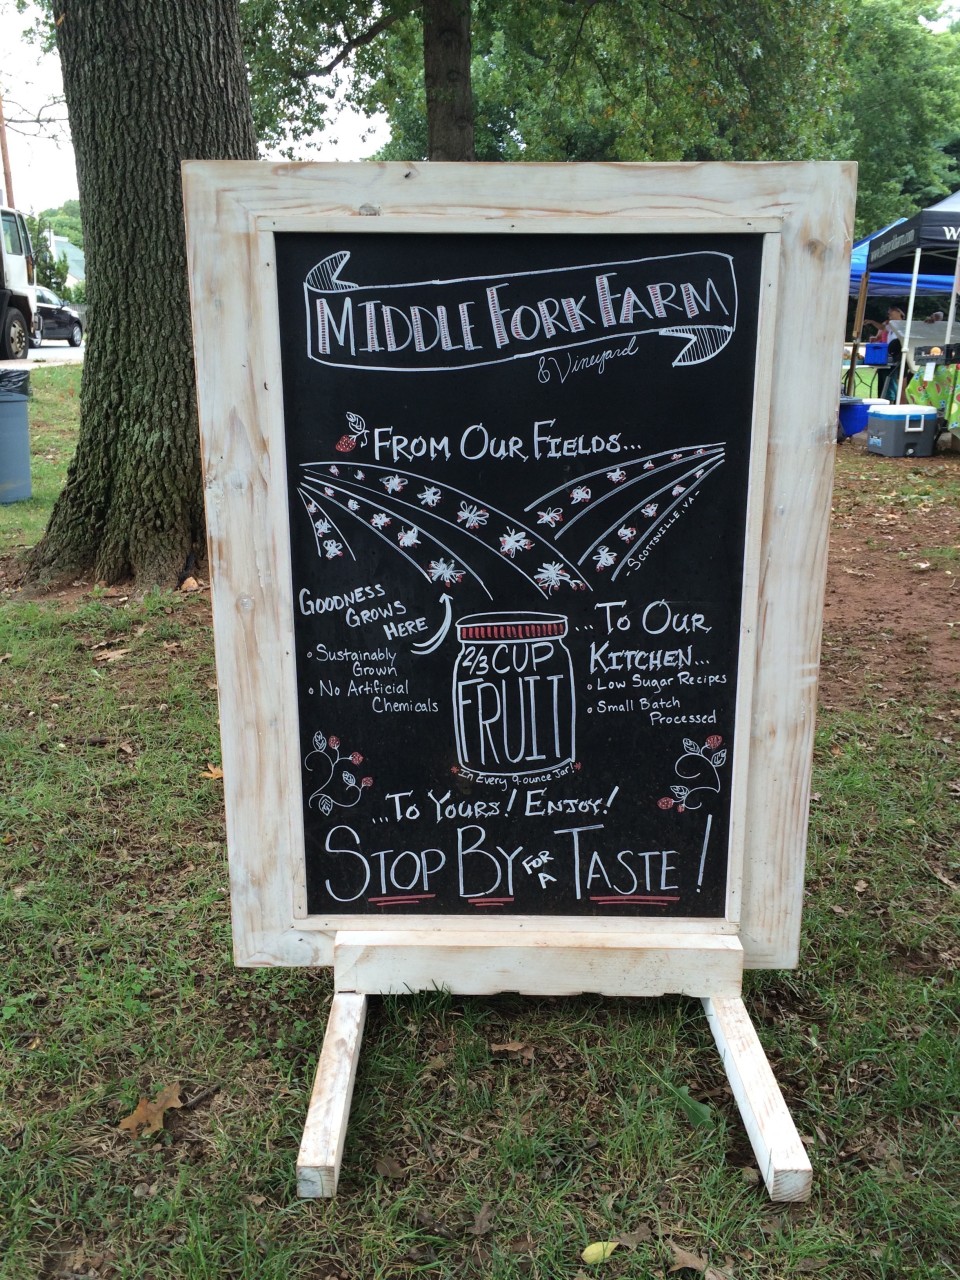 MIDDLE FORK FARM
& Vineyard
FROM OUR FIELDS...
-SCOTTSVILLE, VA-
GOODNESS
GROWS
HERE
Sustainably
Grown
No Artificial
Chemicals
2/3 CUP
FRUIT
*In Every 9-ounce Jar!*
...To Our
KITCHEN...
Low Sugar Recipes
Small Batch
Processed
...To Yours! Enjoy!
STOP BY FOR A TASTE!